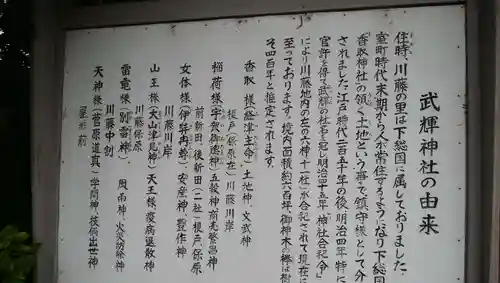 武輝神社の由来
住時、川藤の里は下総国に属しておりました、
室町時代末期から人が常住するようになり下総国
「香取神社」の領く土地という事で鎮守様として分
されました江戸時代二百五十年の後明治四年特に
官許を得て武輝神社と名を冠し明治四十五年「神社合祀令」
により川藤地内の左の六神十一社が合祀されて現在に
至っております。境内面積約六百坪、御神木の椿は樹
そ四百年と推定されます。
香取様(経津主命)土地神、文武神
榎戸(榎原在)川藤川岸
稲荷様(宇賀御魂神)五穀神商売繁昌神
前新田、後新田(二社)榎戸、保原
女体様(伊弉冉尊)安産神、農作神
川藤川岸
山王様(大山津見神)天王様、疫病退散神
川藤保原
雷電様(別雷神)風雨神、火災防除神
川藤中割
天神様(菅原道真)学問神、技俩出世神
屋形前